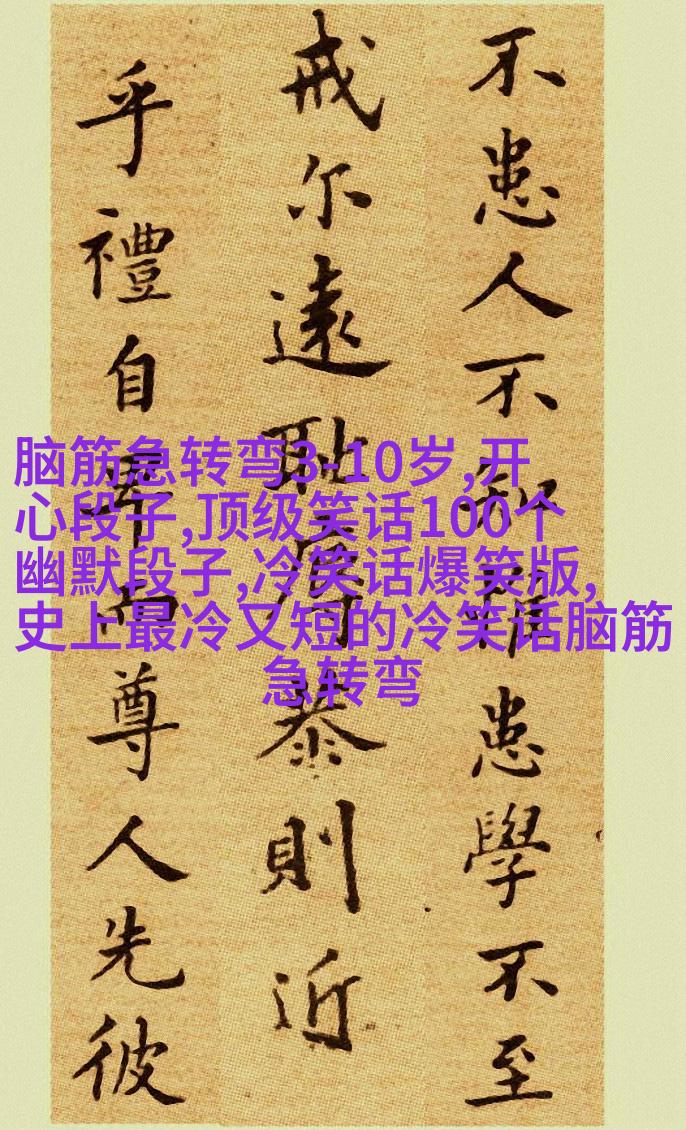 不患人不知惟患學不至
戒尔遠耻辱恭則近
乎禮自卑而尊人先彼
脑筋急转弯3-10岁,开
心段子,顶级笑话100个
幽默段子,冷笑话爆笑版,
史上最冷又短的冷笑话脑筋
急转弯